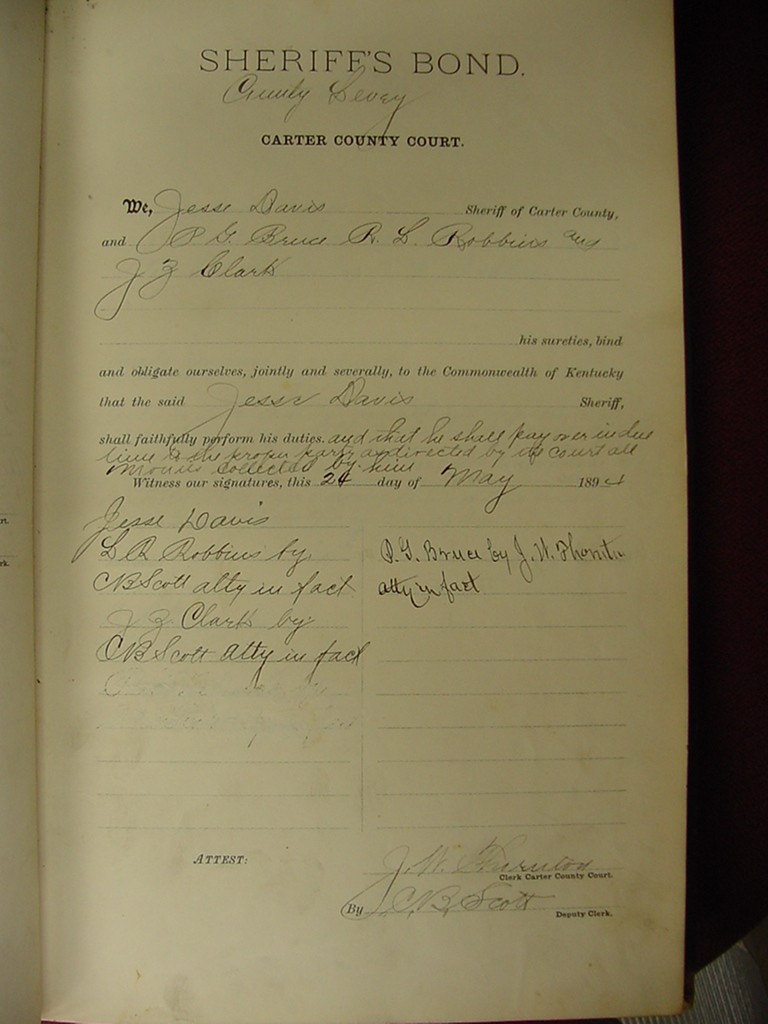 SHERIFF'S BOND.
County Levey
CARTER COUNTY COURT.
We, Jesse Davis Sheriff of Carter County,
and P G. Bruce R. L. Robbins and
J Z Clark
his sureties, bind
and obligate ourselves, jointly and severally, to the Commonwealth of Kentucky
that the said Jesse Davis Sheriff,
shall faithfully perform his duties. and that he shall pay over in due
time to the proper party as directed by the court all
monies collected by him
Witness our signatures, this 24 day of May 1894
Jesse Davis
L R Robbins by
CB Scott atty in fact
J Z Clark by
CB Scott atty in fact
P. G. Bruce by J. W. Thornton
atty in fact
ATTEST:
J. W. Thornton
Clerk Carter County Court.
By C. B. Scott
Deputy Clerk.
rt.
rk.